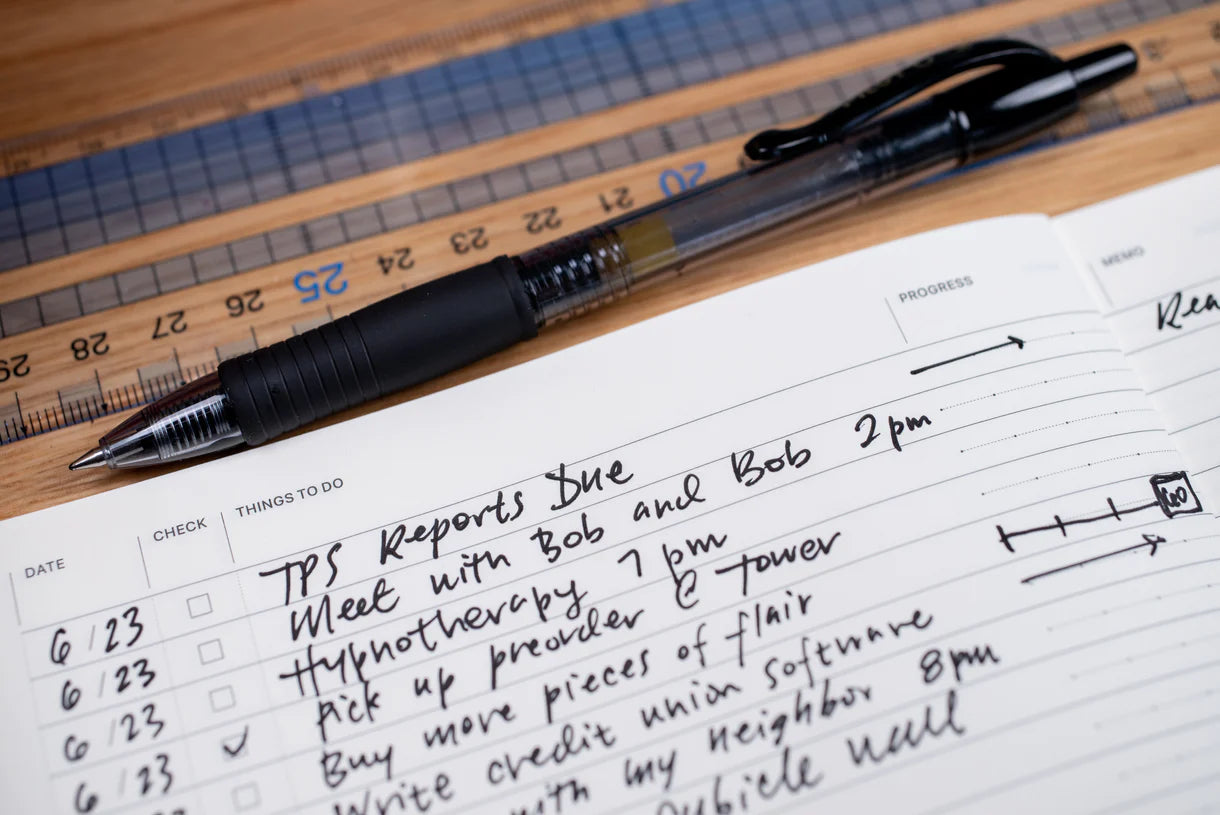 20
21
22
23
24
25
26
27
28
29
PROGRESS
MEMO
DATE
CHECK
THINGS TO DO
6/23 TPS Reports Due
6/23 Meet with Bob and Bob 2pm
6/23 Hypnotherapy 7pm
6/23 Pick up preorder @ Tower
Buy more pieces of flair
Write credit union software
with my neighbor 8pm
cubicle wall